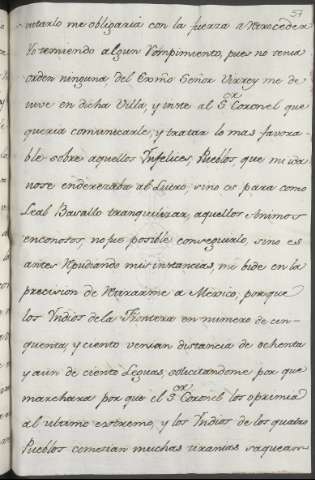 57
ntarlo me obligaria con la fuerza a Retroceder
Yo temiendo algun Rompimiento, pues no tenia
orden ninguna, del Exmo Señor Virrey me de
tuve en dicha Villa, y inste al S.or Coronel que
queria comunicarle, y tratar lo mas favora-
ble sobre aquellos Ynfelices, Pueblos que mi ida
no se enderezaba al Lucro, sino es para como
Leal Basallo tranquilizar, aquellos Animos
enconosos, no fue posible conseguirlo, sino es
antes Repudiando mis instancias, me bide en la
precision de Retirarme a Mexico, porque
los Yndios de la Frontera en numero de cin-
quenta, y ciento venian distancia de ochenta
y aun de ciento Leguas, solicitandome por que
marchara por que el S.or Coronel los oprimia
al ultimo extremo, y los Yndios de los quatro
Pueblos comesian muchas tiranias saqueam